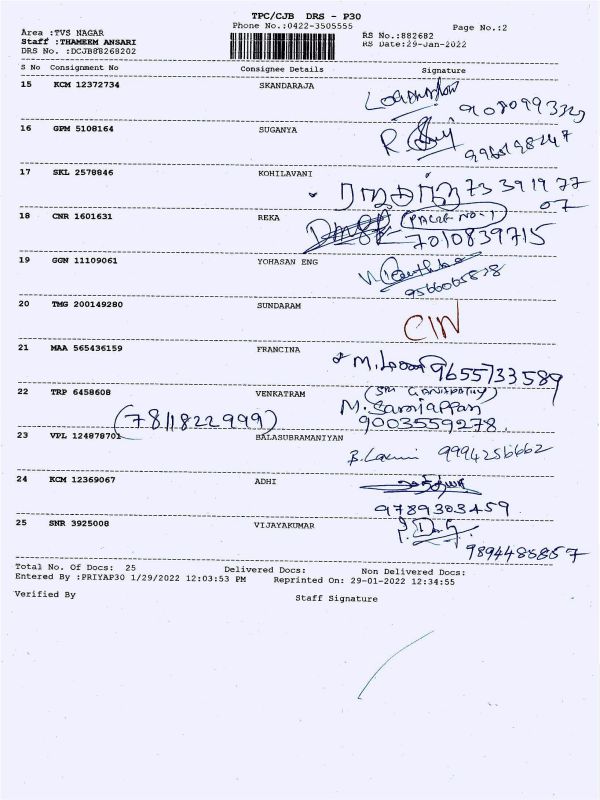 TPC/CJB DRS - P30
Phone No.:0422-3505555 Page No.:2
Area :TVS NAGAR
RS No.:882682
Staff :THAMEEM ANSARI
RS Date:29-Jan-2022
DRS No. :DCJB88268202
S No Consignment No Consignee Details Signature
15 KCM 12372734 SKANDARAJA
16 GPM 5108164 SUGANYA
17 SKL 2578846 KOHILAVANI
73391977
07
18 CNR 1601631 REKA
7010839715
19 GGN 11109061 YOHASAN ENG
20 TMG 200149280 SUNDARAM
CIN
21 MAA 565436159 FRANCINA
9655733589
22 TRP 6458608 VENKATRAM
(7811822999) 9003559278.
23 VPL 124878701 BALASUBRAMANIYAN
B.Laxmi 9994256662
24 KCM 12369067 ADHI
9789303459
25 SNR 3925008 VIJAYAKUMAR
Total No. Of Docs: 25 Delivered Docs: Non Delivered Docs:
Entered By :PRIYAP30 1/29/2022 12:03:53 PM Reprinted On: 29-01-2022 12:34:55
Verified By Staff Signature